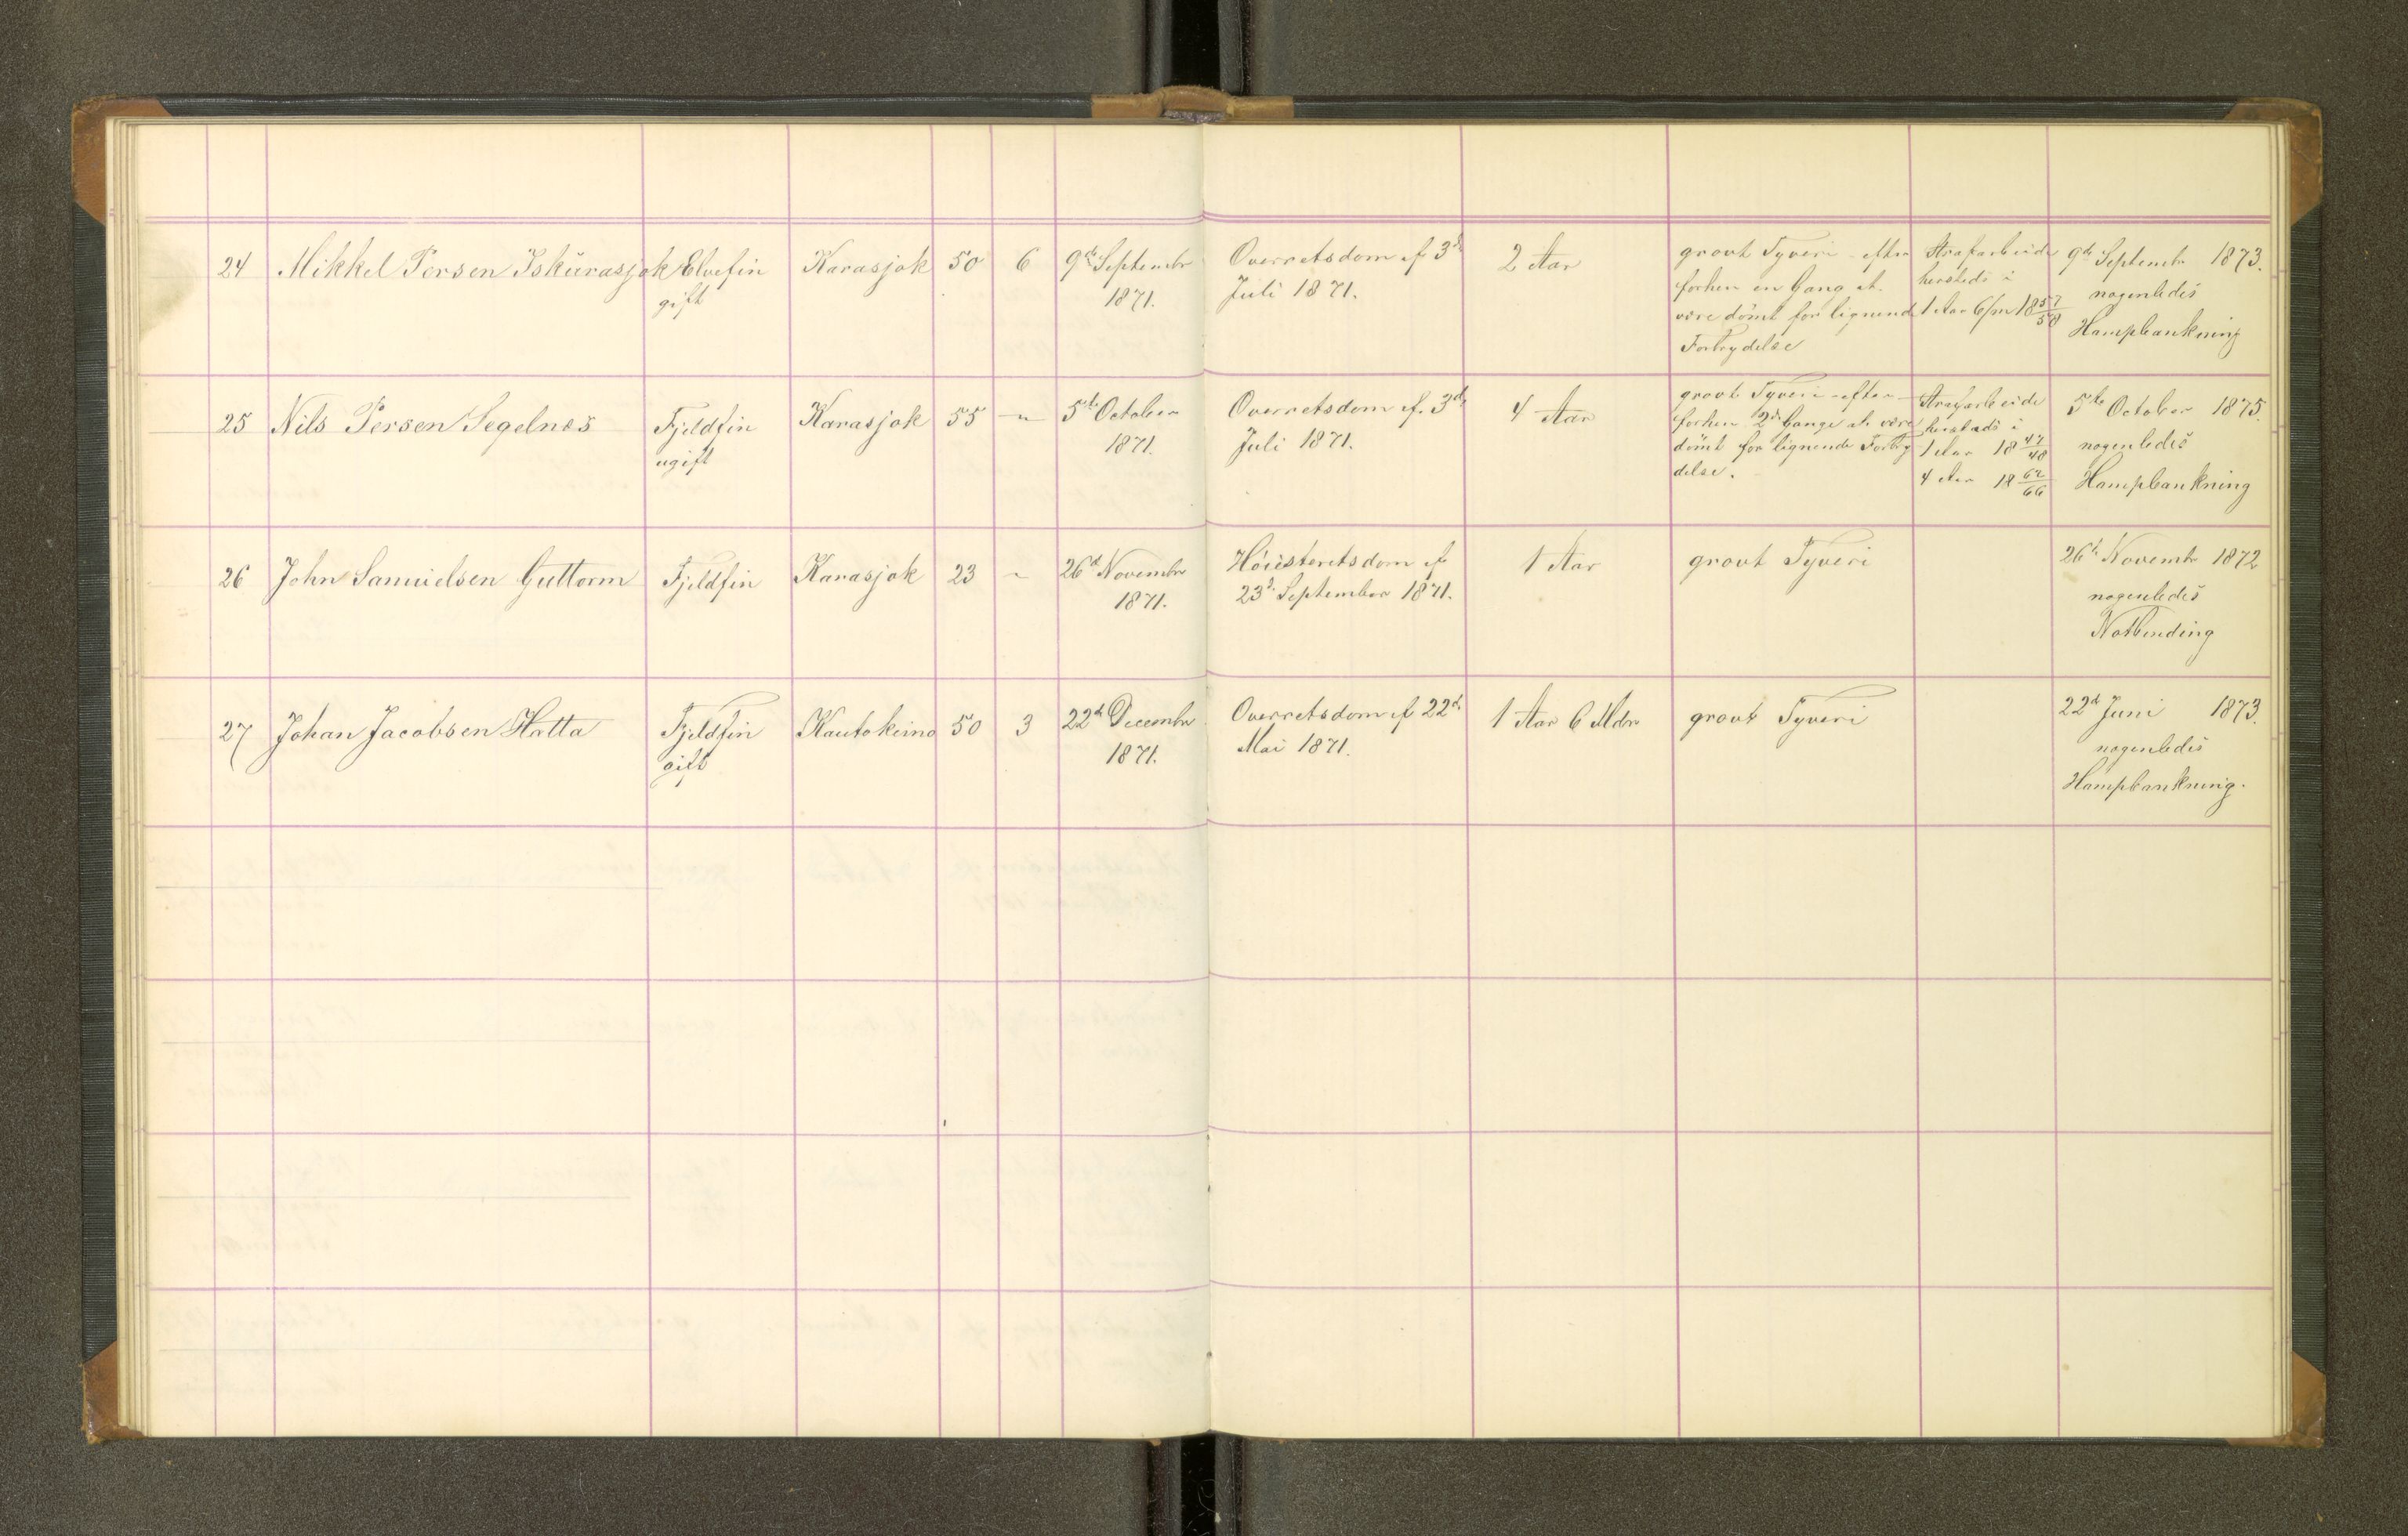 24 Mikkel Persen Iskürasjok Elvefin gift Karasjok 50 6 9de Septembr 1871. Overretsdom af 3de Juli 1871. 2 Aar grovt Tyveri efter forhen en Gang at være dömt for lignende Forbrydelse Strafarbeide hersteds i 1 Aar 6/m 1857/58 9de Septembr 1873. nogenledes Hampbankning
25 Nils Persen Segelnæs Fjeldfin ugift Karasjok 55 " 5te October 1871. Overretsdom af 3de Juli 1871. 4 Aar grovt Tyveri efter forhen 2de Gange at være dömt for lignende Forbrydelse. Strafarbeide hersteds i 1 Aar 1847/48 4 Aar 1862/66 5te October 1875. nogenledes Hampbankning
26 John Samuelsen Guttorm Fjeldfin Karasjok 23 " 26de Novembr 1871. Höiesteretsdom af 23de September 1871. 1 Aar grovt Tyveri 26de Novembr 1872 nogenledes Notbinding
27 Johan Jacobsen Hætta Fjeldfin gift Kautokeino 50 3 22de Decembr 1871. Overretsdom af 22de Mai 1871. 1 Aar 6 Mdr grovt Tyveri 22de Juni 1873. nogenledes Hampbankning.